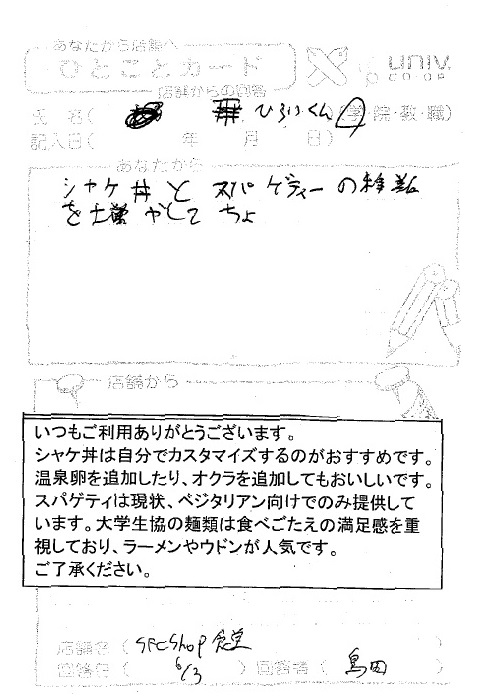 あなたから店舗へ
ひとことカード
店舗からの回答
UNIV.
CO-OP
氏 名( 丼 ひろいくん )(学・院・教・職)
記入日( 年 月 日)
あなたから
シャケ丼と スパゲティーの種類
を増やして ちょ
店舗から
いつもご利用ありがとうございます。
シャケ丼は自分でカスタマイズするのがおすすめです。
温泉卵を追加したり、オクラを追加してもおいしいです。
スパゲティは現状、ベジタリアン向けでのみ提供して
います。大学生協の麺類は食べごたえの満足感を重
視しており、ラーメンやウドンが人気です。
ご了承ください。
店舗名( SFCShop 食堂 )
回答日( 6/3 ) 回答者( 島田 )